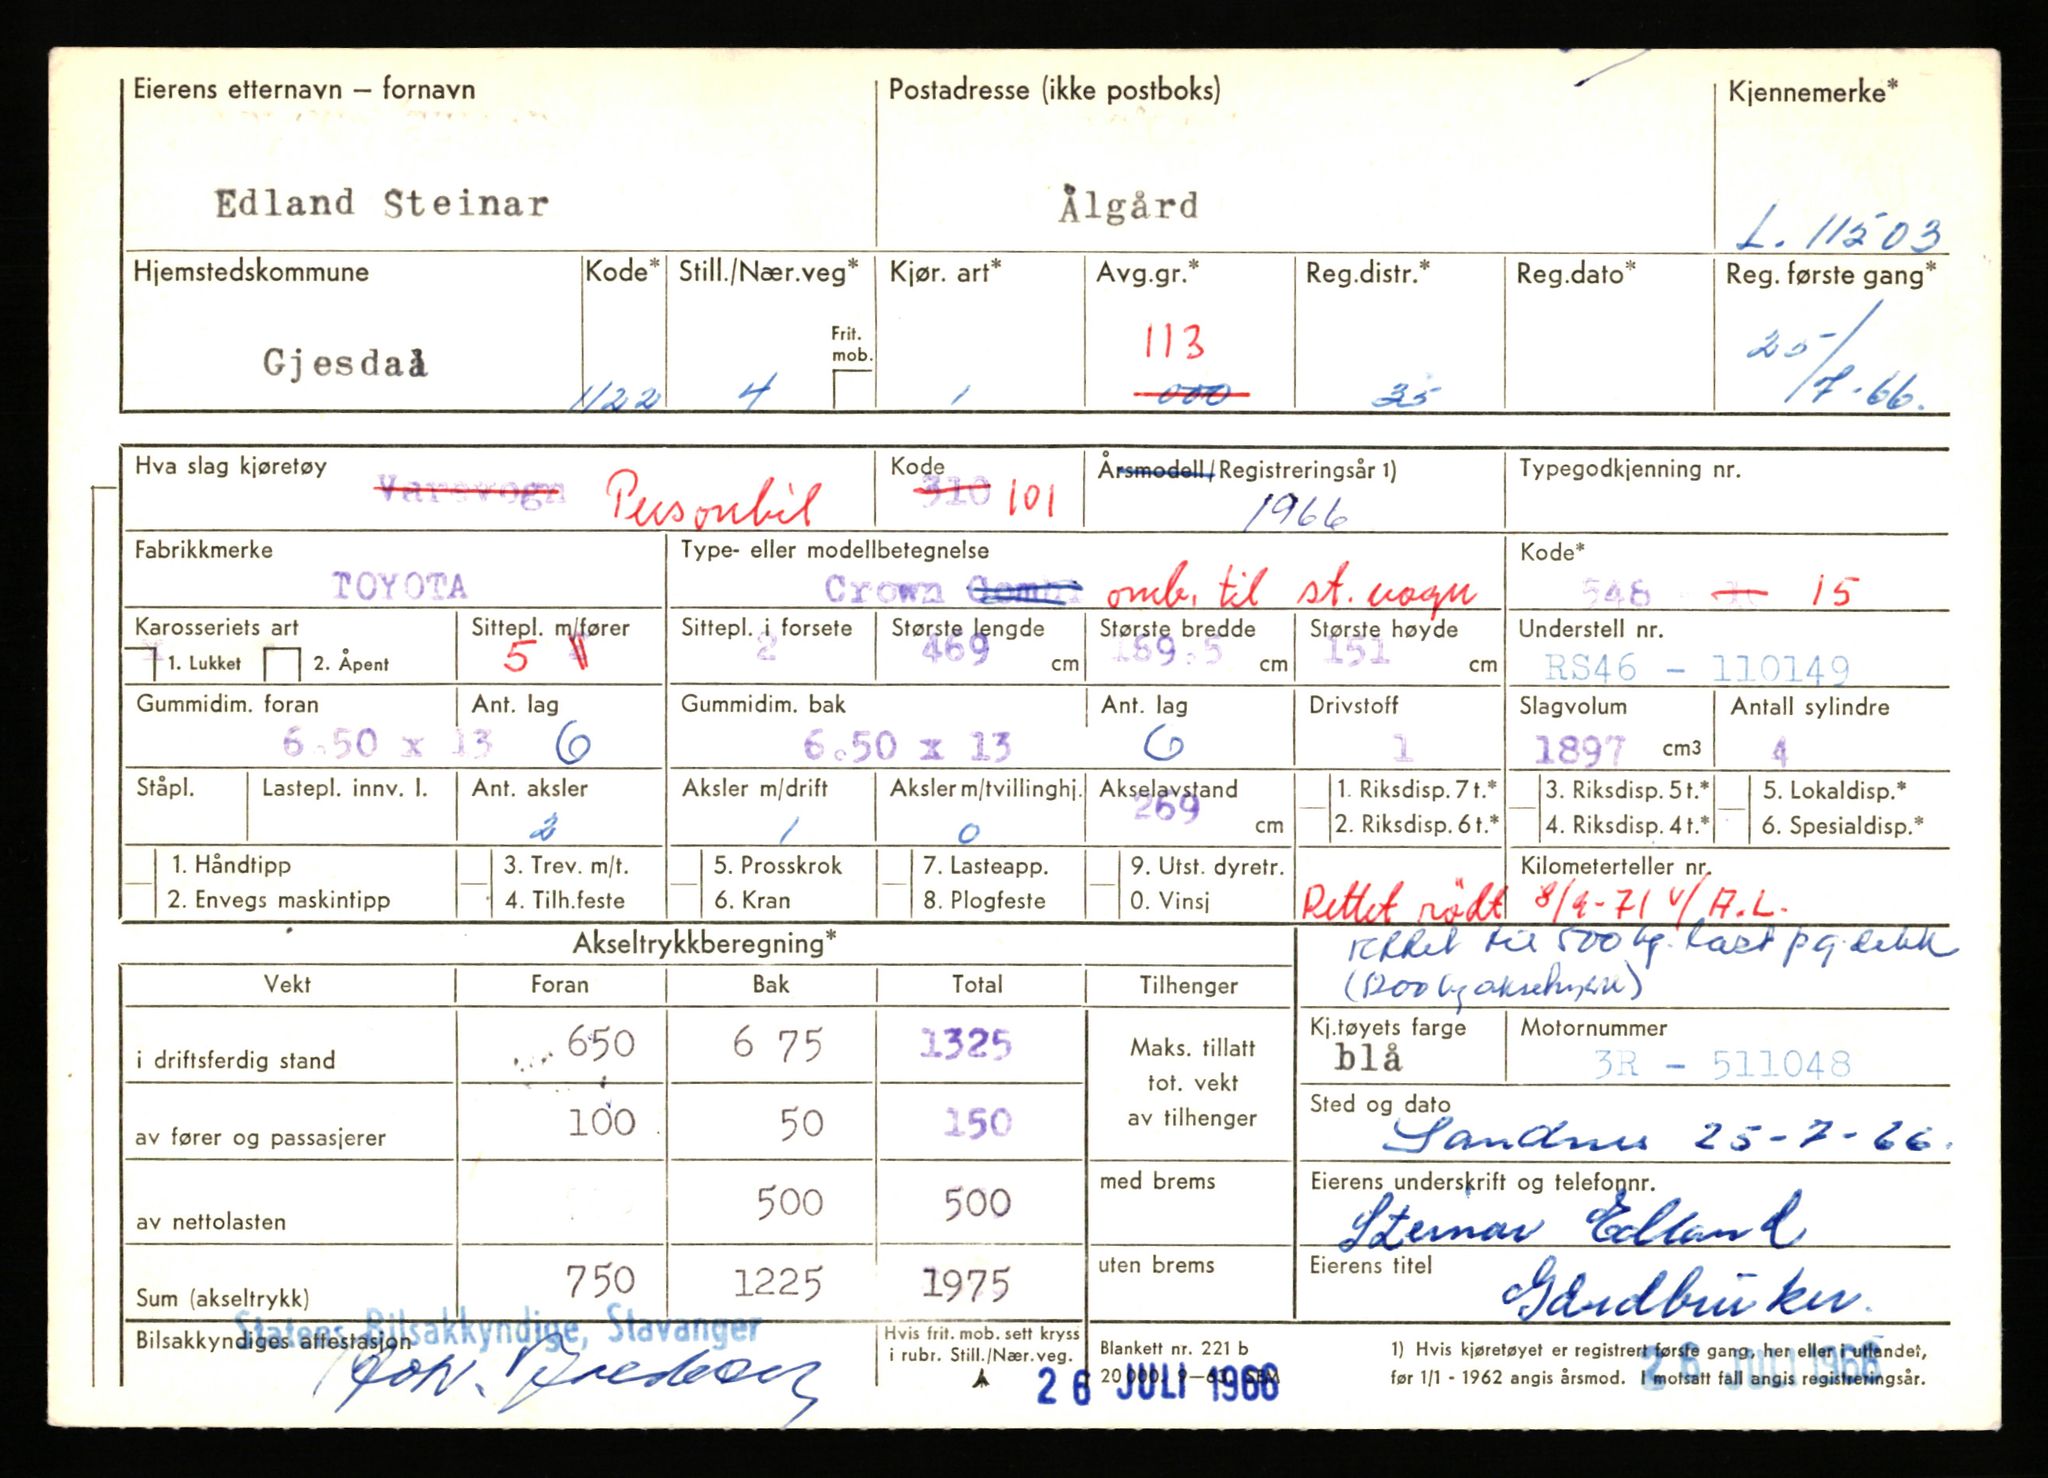 Eierens etternavn – fornavn Postadresse (ikke postboks) Kjennemerke*
Edland Steinar Ålgård L. 11503
Hjemstedskommune Kode* Still./Nær.veg* Kjør. art* Avg.gr.* Reg.distr.* Reg.dato* Reg. første gang*
Frit. mob.
Gjesdal 1122 4 1 113 000 35 25/7-66.
Hva slag kjøretøy Kode Årsmodell/Registreringsår 1) Typegodkjenning nr.
Varevogn Personbil 310 101 1966
Fabrikkmerke Type- eller modellbetegnelse Kode*
TOYOTA Crown Combi omb. til st. vogn 548 15
Karosseriets art Sittepl. m/fører Sittepl. i forsete Største lengde Største bredde Største høyde Understell nr.
1. Lukket 2. Åpent 5 2 469 cm 169.5 cm 151 cm RS46 - 110149
Gummidim. foran Ant. lag Gummidim. bak Ant. lag Drivstoff Slagvolum Antall sylindre
6.50 x 13 6 6.50 x 13 6 1 1897 cm3 4
Ståpl. Lastepl. innv. l. Ant. aksler Aksler m/drift Aksler m/tvillinghj. Akselavstand 1. Riksdisp. 7 t.* 3. Riksdisp. 5 t.* 5. Lokaldisp.*
2 1 0 269 cm 2. Riksdisp. 6 t.* 4. Riksdisp. 4 t.* 6. Spesialdisp.*
1. Håndtipp 3. Trev. m/t. 5. Prosskrok 7. Lasteapp. 9. Utst. dyretr. Kilometerteller nr.
2. Envegs maskintipp 4. Tilh.feste 6. Kran 8. Plogfeste 0. Vinsj Rettet rødt 8/9-71 v/A.L.
Akseltrykkberegning* rettet til 500 kg. last p g. dekk
(1200 kg akseltrykk)
Vekt Foran Bak Total Tilhenger
i driftsferdig stand 650 675 1325 Maks. tillatt tot. vekt av tilhenger
Kj.tøyets farge Motornummer
blå 3R - 511048
av fører og passasjerer 100 50 150
Sted og dato
Sandnes 25-7-66.
av nettolasten 500 500 med brems
Eierens underskrift og telefonnr.
Steinar Edland
Sum (akseltrykk) 750 1225 1975 uten brems
Eierens titel
Gårdbruker.
Statens Bilsakkyndige, Stavanger
Bilsakkyndiges attestasjon
Hvis frit. mob. sett kryss i rubr. Still./Nær.veg.
Blankett nr. 221 b
20 000. 9–63. SEM
26 JULI 1966
1) Hvis kjøretøyet er registrert første gang, her eller i utlandet,
før 1/1 - 1962 angis årsmod. I motsatt fall angis registreringsår.
26 JULI 1966